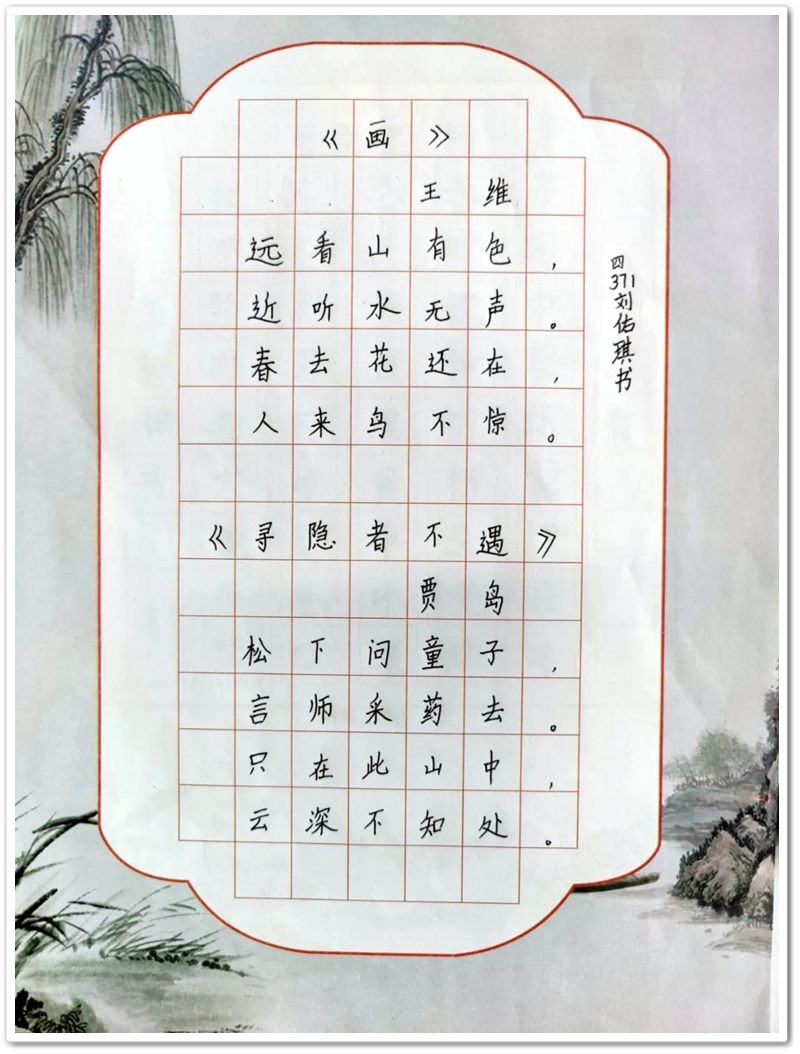 《画》
王维
远看山有色，
近听水无声。
春去花还在，
人来鸟不惊。
《寻隐者不遇》
贾岛
松下问童子，
言师采药去。
只在此山中，
云深不知处。
四371刘佑琪书